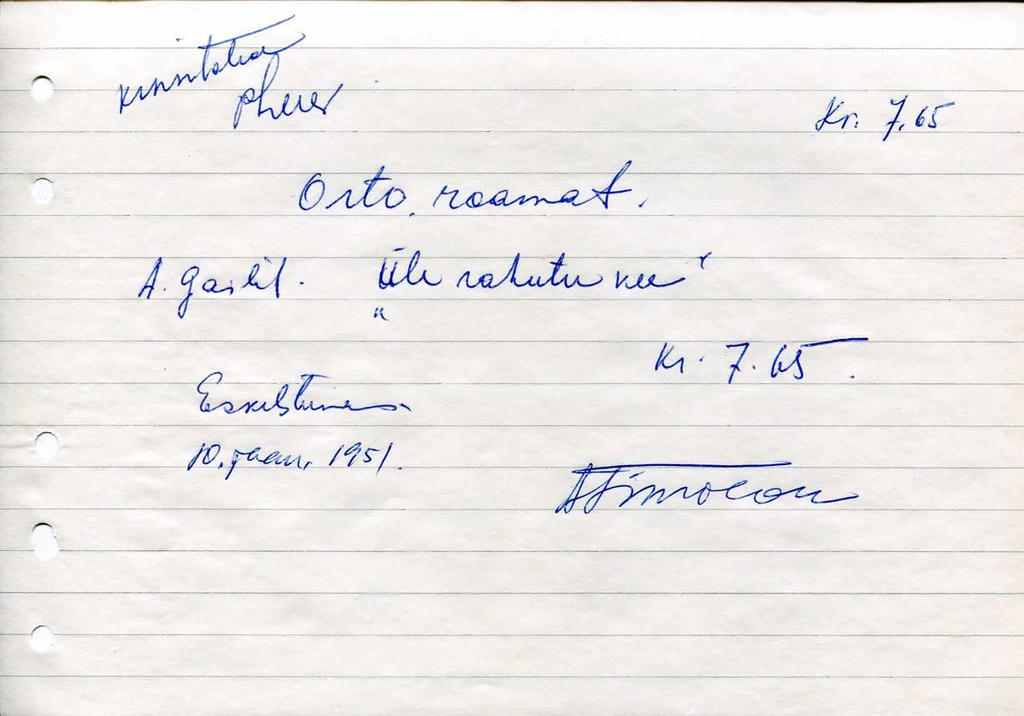 kinnitatud
Kr. 7.65
Orto raamat.
A. Gailit. „Üle rahutu vee“
Kr. 7.65.
Eskilstuna
10. jaan. 1951.